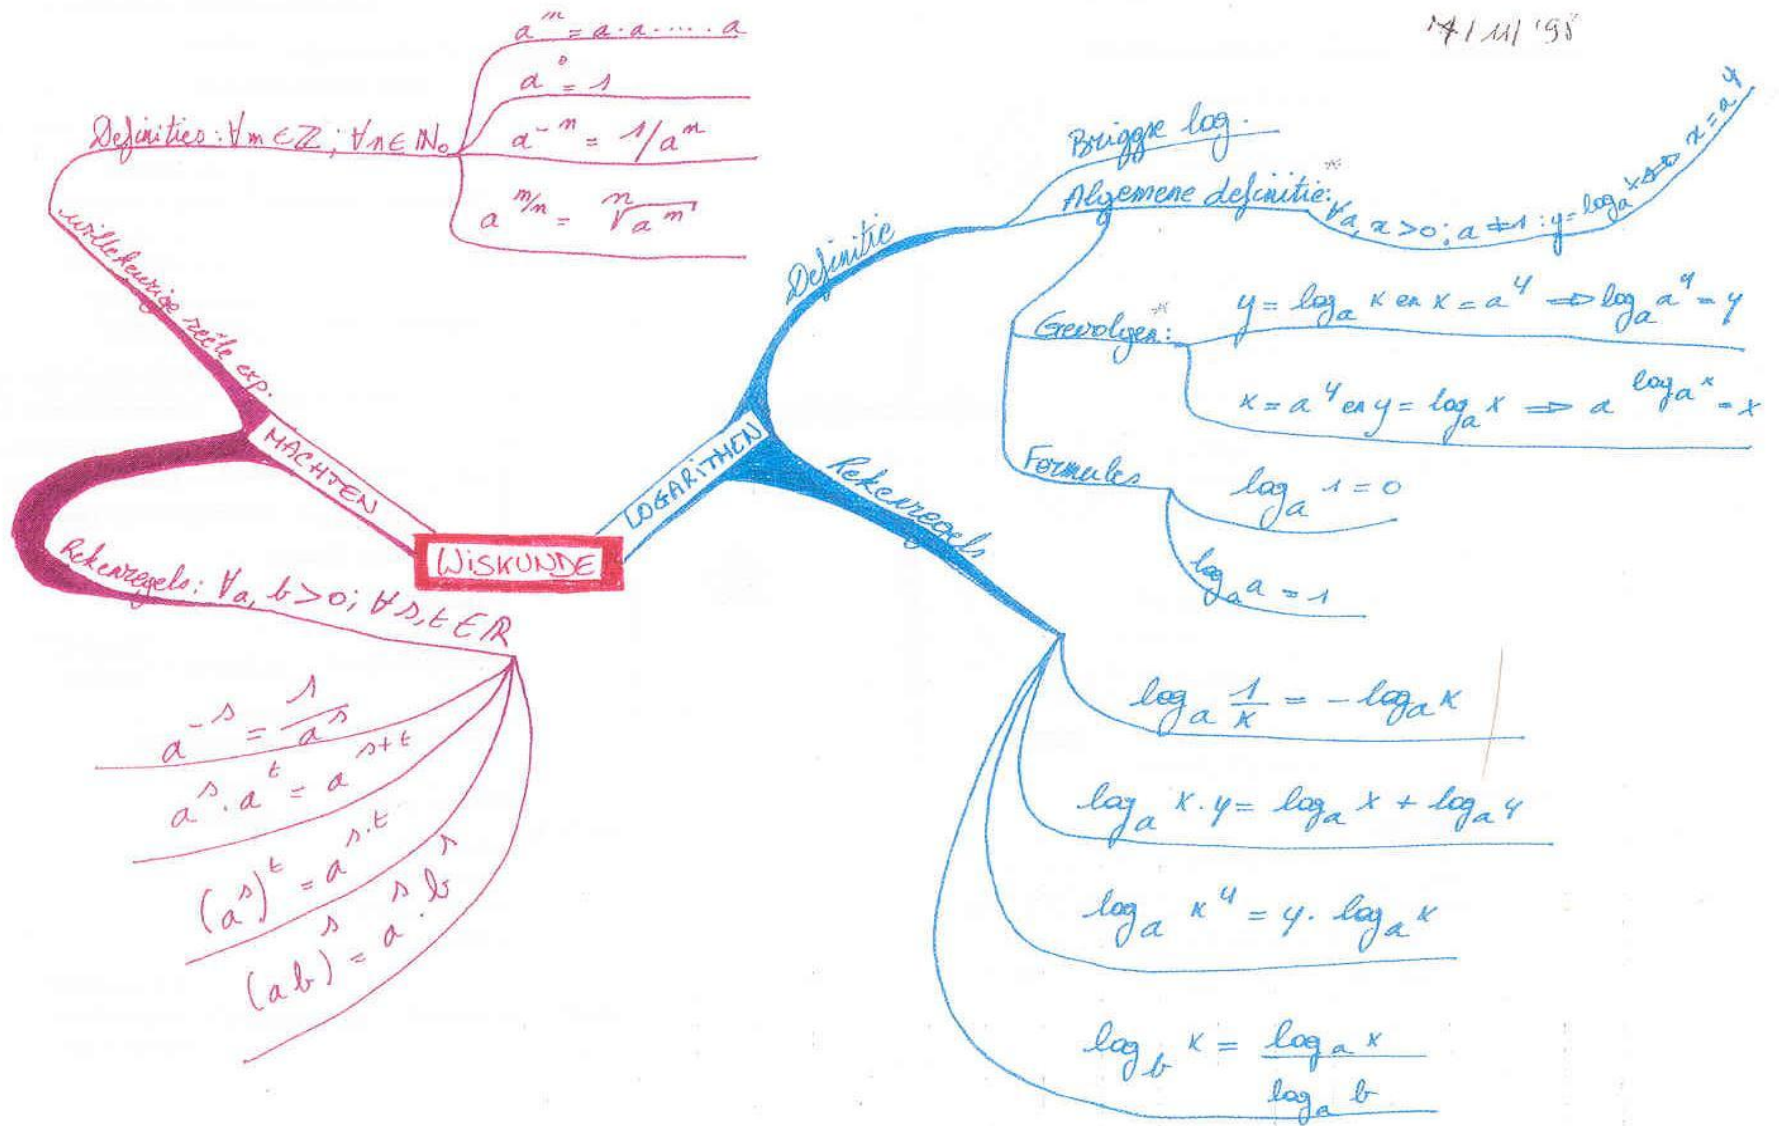 11/'95
a^m = a·a·....·a
a^0 = 1
Definities: ∀m∈ℤ; ∀n∈ℕ₀
a^-n = 1/a^n
a^m/n = ⁿ√a^m
willekeurige reële exp.
MACHTEN
WISKUNDE
Rekenregels: ∀a, b>0; ∀s,t∈ℝ
a^-s = 1/a^s
a^s · a^t = a^s+t
(a^s)^t = a^s·t
(ab)^s = a^s · b^s
LOGARITHEN
Definitie
Briggse log.
Algemene definitie:* ∀a, x>0; a≠1: y=log_a x ⇔ x=a^y
Gevolgen:*
y = log_a x en x = a^y ⇒ log_a a^y = y
x = a^y en y = log_a x ⇒ a^log_a x = x
Formules
log_a 1 = 0
log_a a = 1
Rekenregels
log_a 1/x = - log_a x
log_a x·y = log_a x + log_a y
log_a x^y = y · log_a x
log_b x = log_a x / log_a b